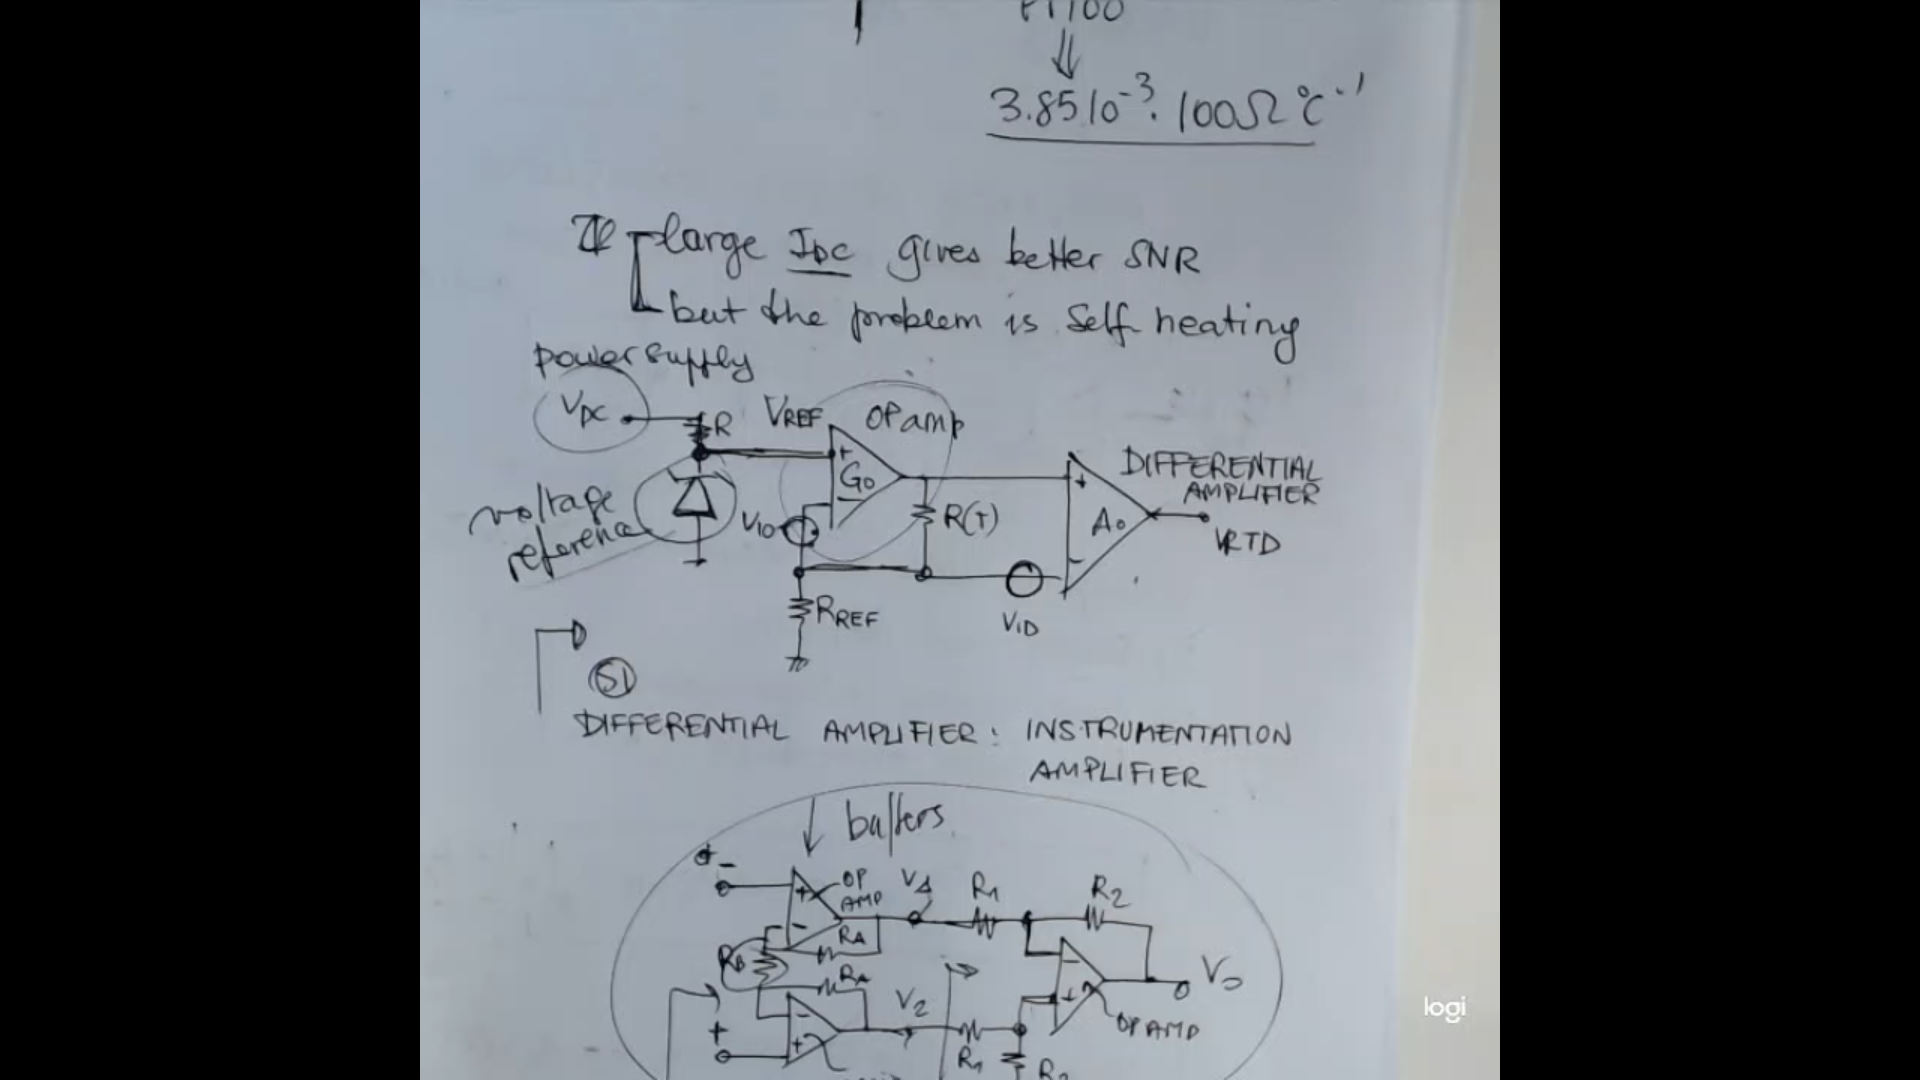 PT100
3.85 10⁻³ · 100Ω °C⁻¹
large IDC gives better SNR
but the problem is Self heating
power supply
VDC
R
VREF
OP amp
voltage
reference
+
G0
-
VIO
R(T)
RREF
+
A0
-
VID
DIFFERENTIAL
AMPLIFIER
VRTD
S1
DIFFERENTIAL AMPLIFIER: INSTRUMENTATION
AMPLIFIER
buffers
-
+
-
OP
AMP
V1
R1
R2
RA
RB
RA
-
+
VO
+
V2
-
+
OP AMP
R1
R2
logi